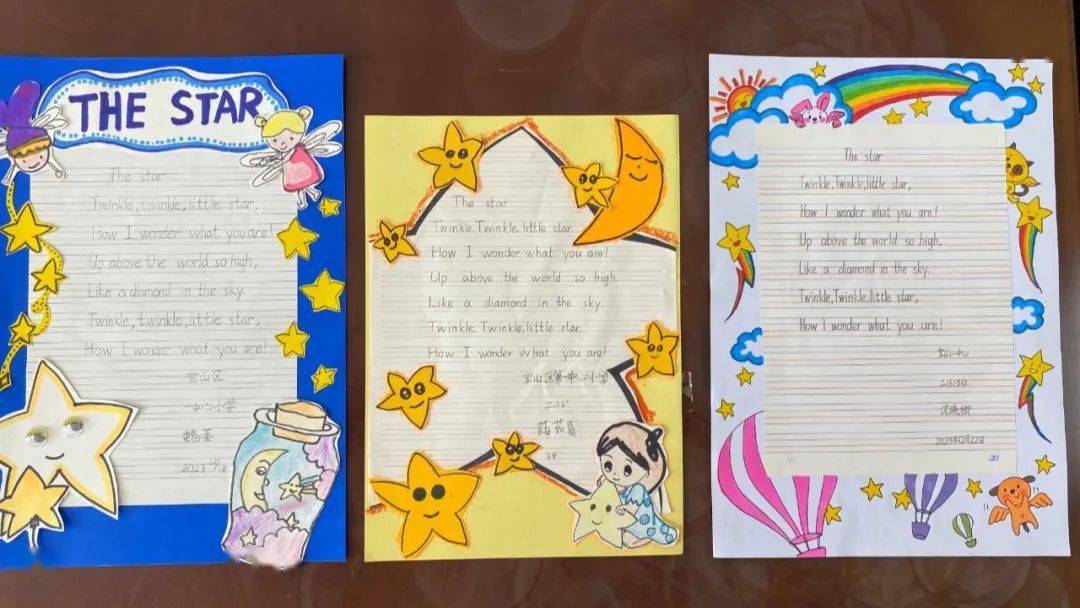 THE STAR
The star
Twinkle, twinkle, little star,
How I wonder what you are!
Up above the world so high,
Like a diamond in the sky
Twinkle, twinkle, little star,
How I wonder what you are!
宝山区
一中心小学
2023
The star
Twinkle. Twinkle. little star.
How I wonder what you are!
Up above the world so high.
Like a diamond in the sky.
Twinkle. Twinkle. little star.
How I wonder what you are!
宝山区第一中心小学
薛茹嘉
34
The star
Twinkle, Twinkle, little star,
How I wonder what you are!
Up above the world so high,
Like a diamond in the sky.
Twinkle, Twinkle, little star,
How I wonder what you are!
宝山一中心
12月22日